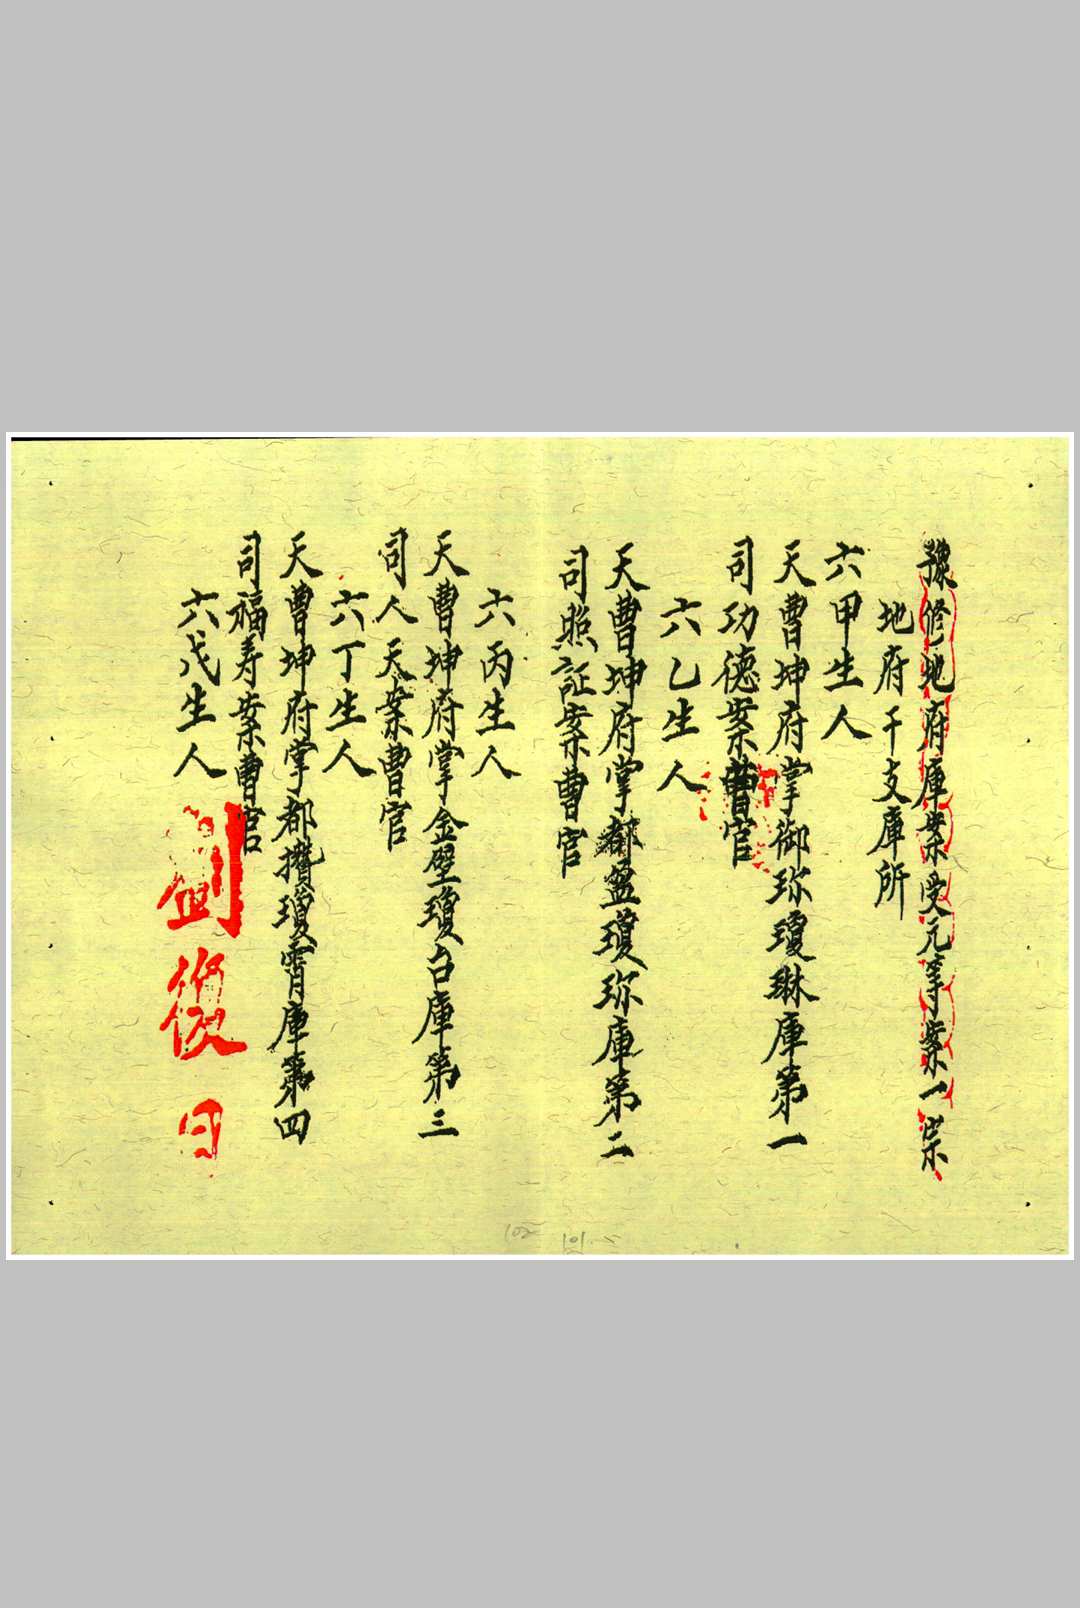 豫修地府庫案受元等案一宗
地府干支庫所
六甲生人
天曹坤府掌御珎瓊琳庫第一
司功德案曹官
六乙生人
天曹坤府掌都盈瓊珎庫第二
司照証案曹官
六丙生人
天曹坤府掌金壁瓊台庫第三
司人天案曹官
六丁生人
天曹坤府掌都攢瓊霄庫第四
司福寿案曹官
六戊生人
101
102